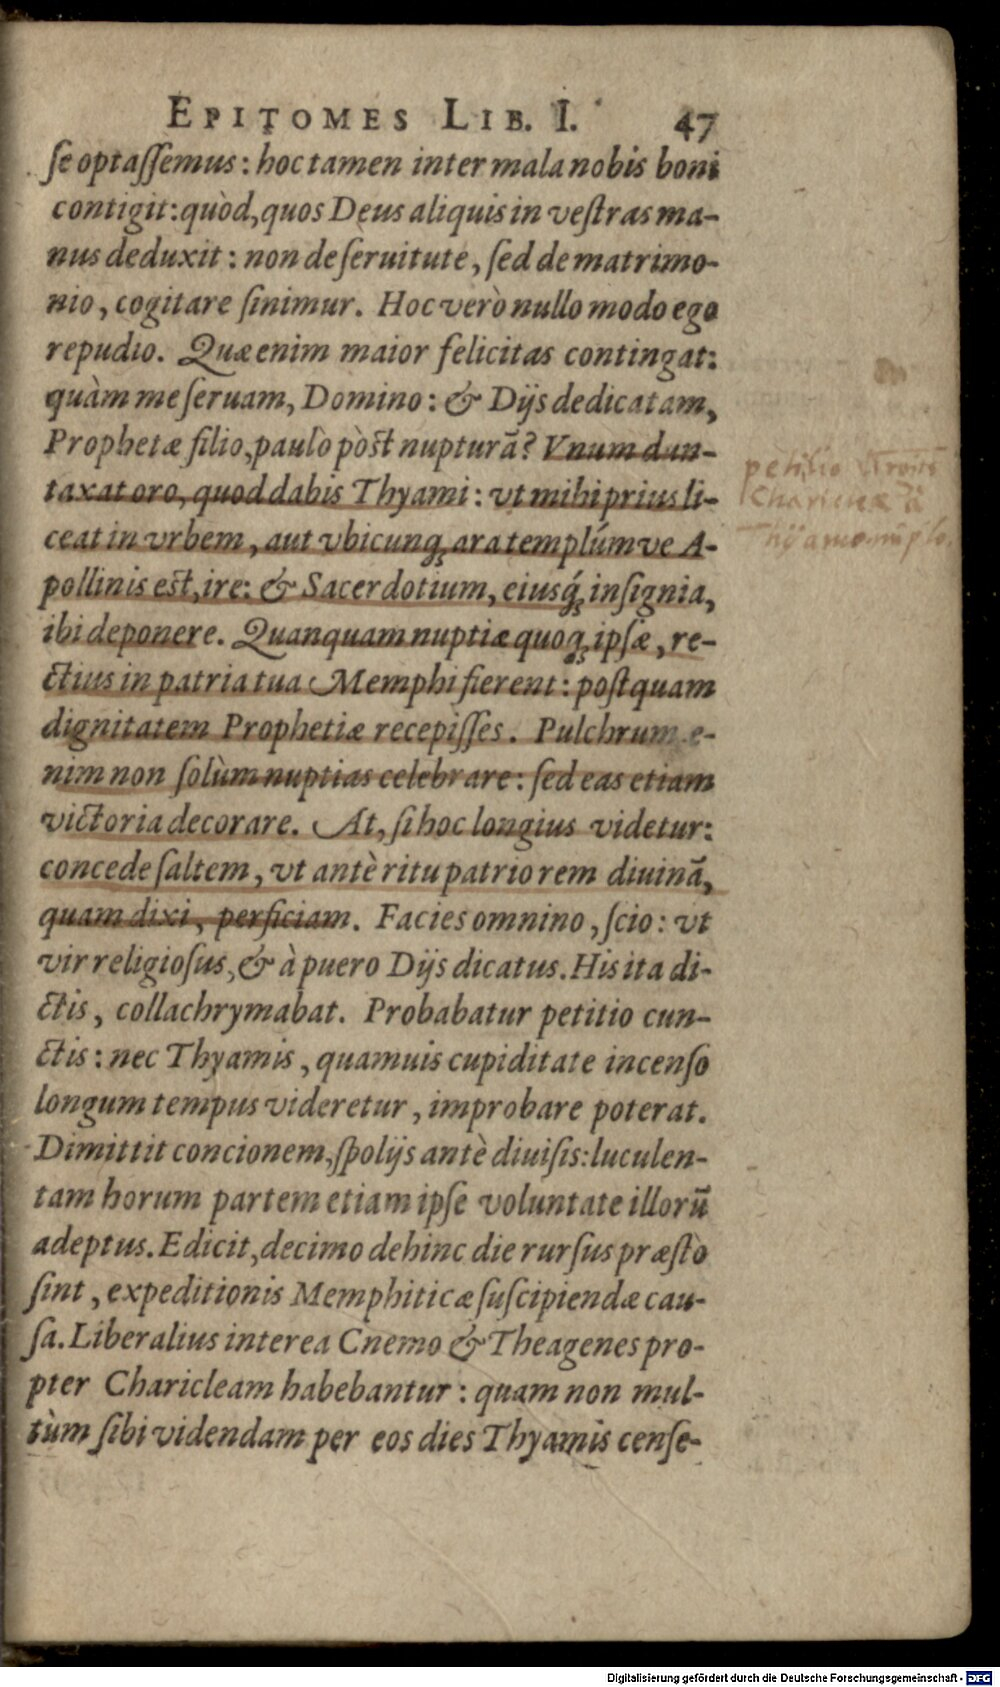 EPITOMES LIB. I. 47
ſe optaſſemus: hoc tamen inter mala nobis boni
contigit: quòd, quos Deus aliquis in veſtras ma-
nus deduxit: non de ſeruitute, ſed de matrimo-
nio, cogitare ſinimur. Hoc verò nullo modo ego
repudio. Quæ enim maior felicitas contingat:
quàm me ſeruam, Domino: & Dijs dedicatam,
Prophetæ filio, paulò pòst nupturā? Vnum dun-
taxat oro, quod dabis Thyami: vt mihi prius li-
ceat in vrbem, aut vbicunq́ꝫ ara templúmve A-
pollinis est, ire: & Sacerdotium, eiusq́ꝫ inſignia,
ibi deponere. Quanquam nuptiæ quoqꝫ ipſæ, re-
ctius in patria tua Memphi fierent: poſtquam
dignitatem Prophetiæ recepiſſes. Pulchrum e-
nim non ſolùm nuptias celebrare: ſed eas etiam
victoria decorare. At, ſi hoc longius videtur:
concede ſaltem, vt antè ritu patrio rem diuinā,
quam dixi, perficiam. Facies omnino, ſcio: vt
vir religioſus, & à puero Dijs dicatus. His ita di-
ctis, collachrymabat. Probabatur petitio cun-
ctis: nec Thyamis, quamuis cupiditate incenſo
longum tempus videretur, improbare poterat.
Dimittit concionem, ſpolijs antè diuiſis: luculen-
tam horum partem etiam ipſe voluntate illorū
adeptus. Edicit, decimo dehinc die rurſus præſto
ſint, expeditionis Memphiticæ ſuſcipiendæ cau-
ſa. Liberalius interea Cnemo & Theagenes pro-
pter Charicleam habebantur: quam non mul-
tùm ſibi videndam per eos dies Thyamis cenſe-
petitio
Digitalisierung gefördert durch die Deutsche Forschungsgemeinschaft - DFG